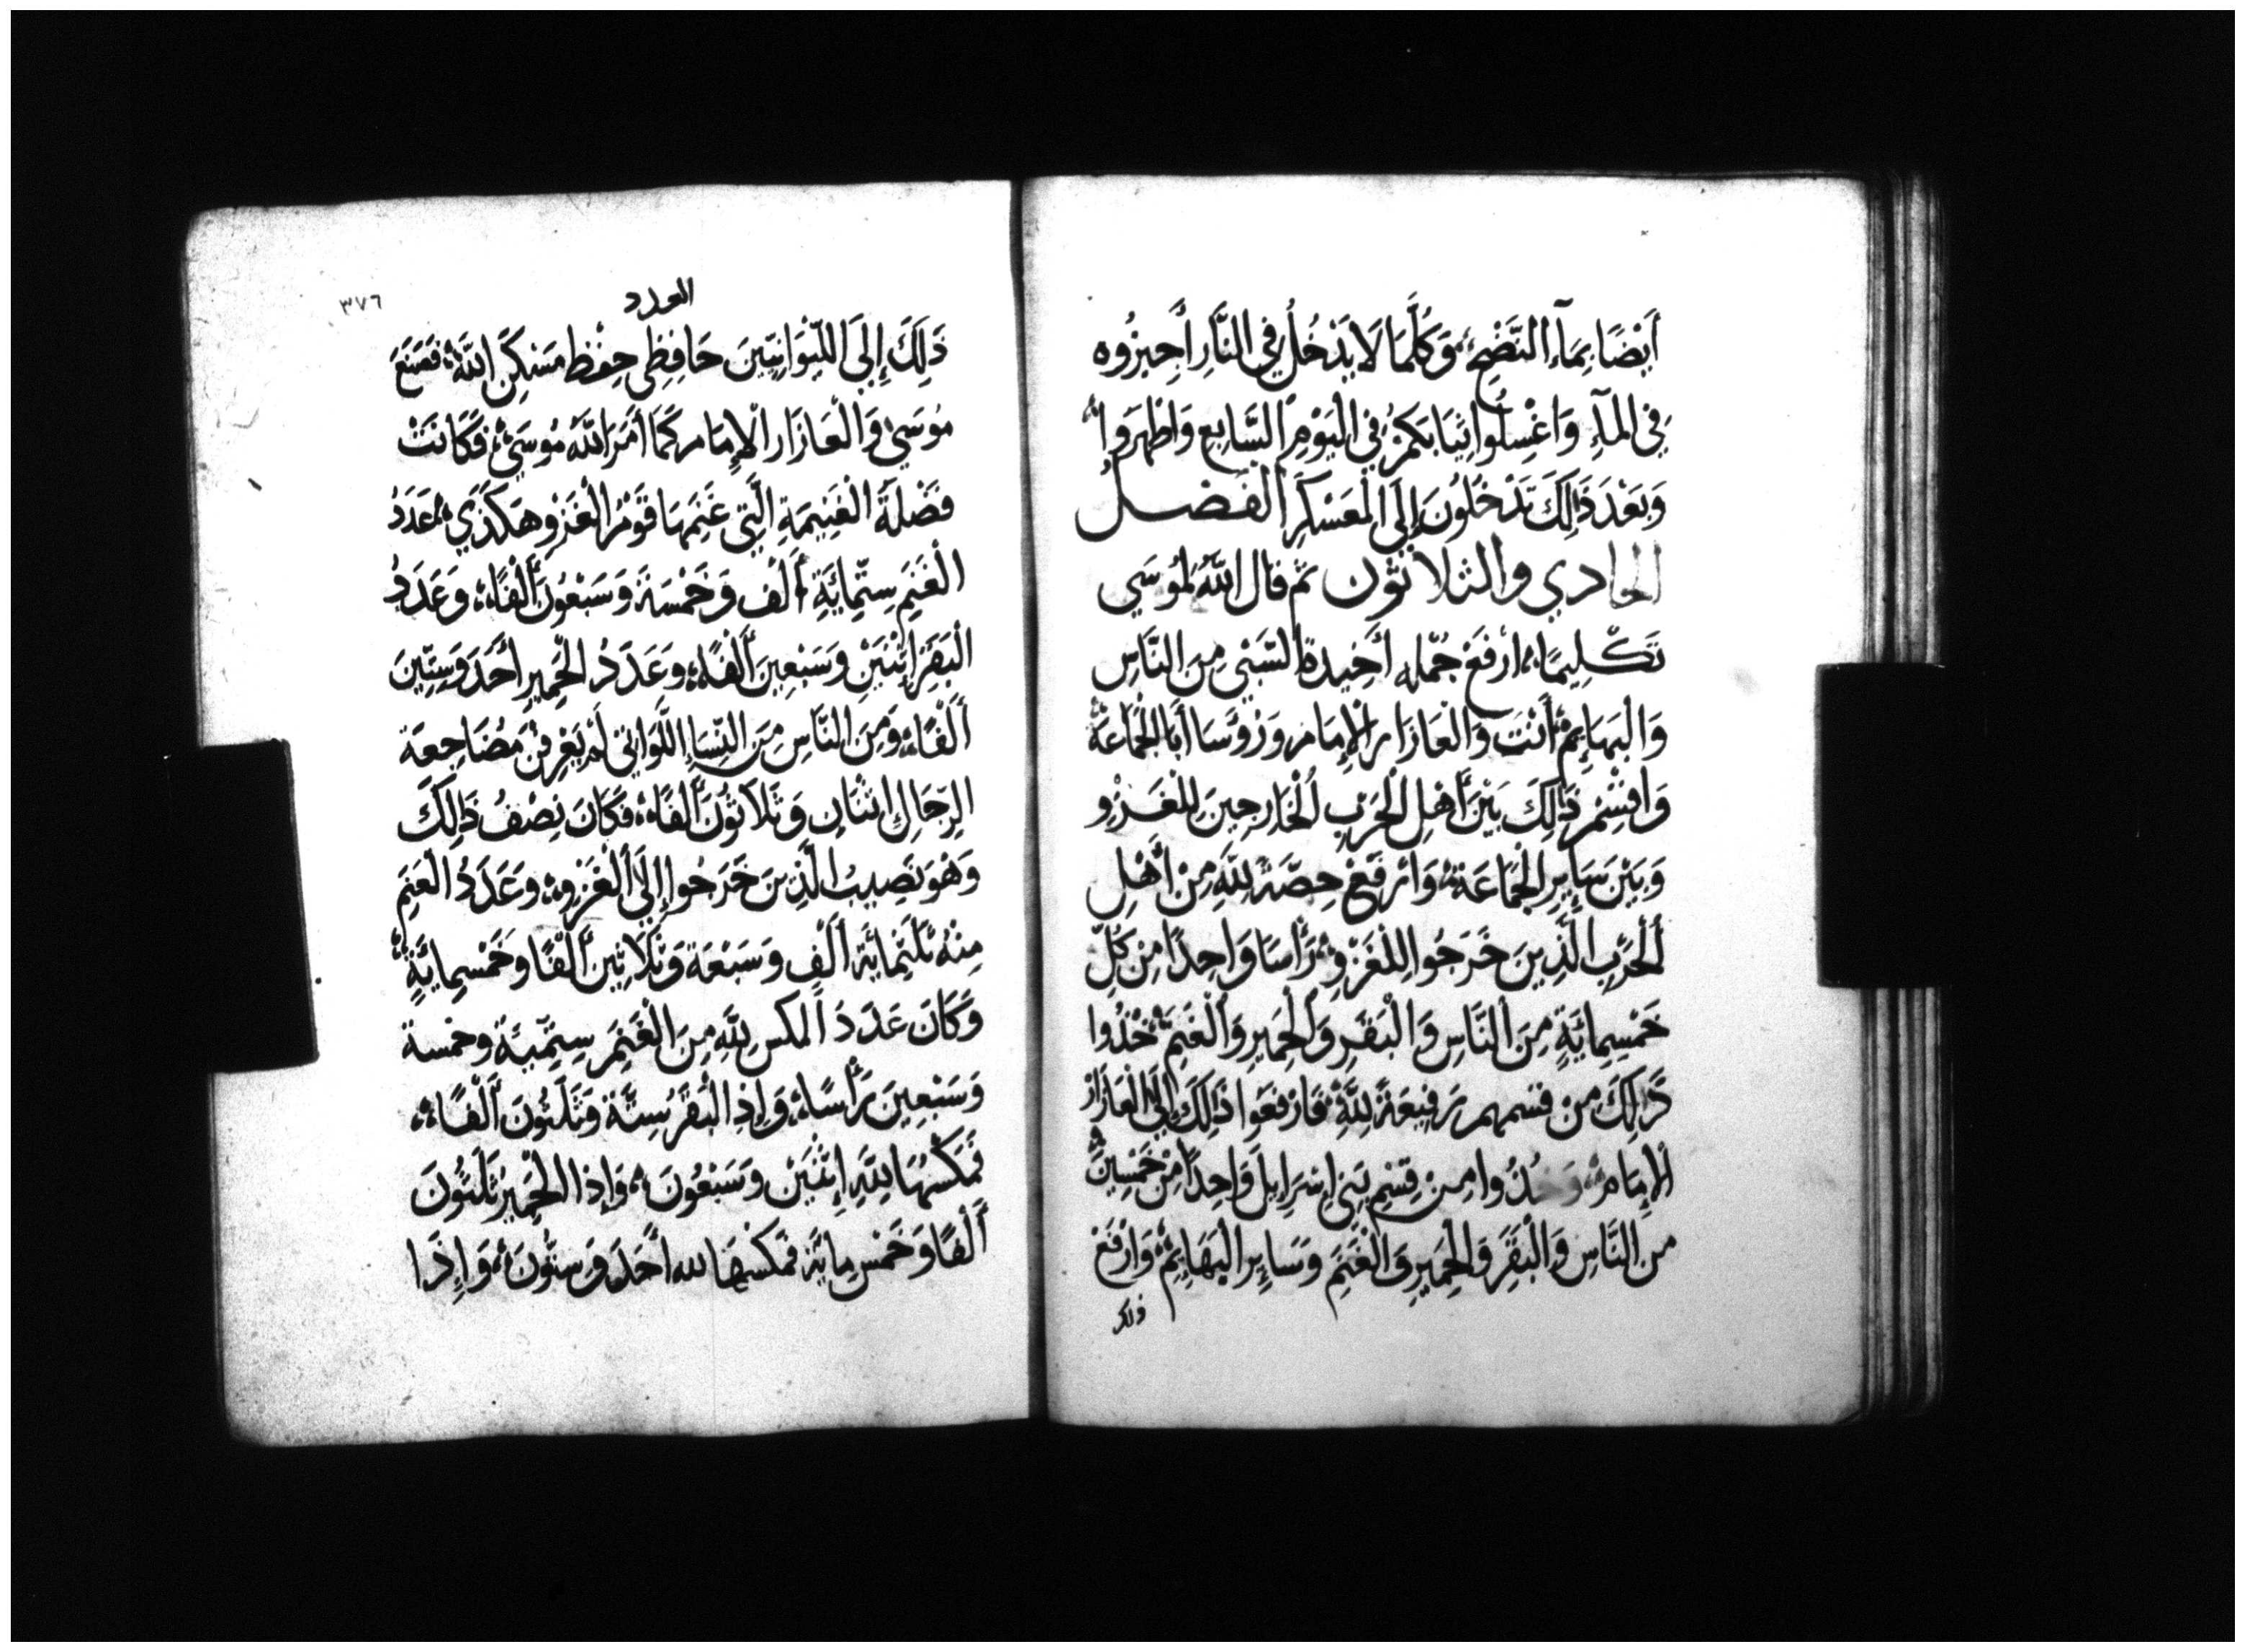 أَيْضًا بِمَآءِ النَّضْحِ، وَكُلَّمَا لَا يَدْخُلُ فِي النَّارِ أَجِيزُوه
فِي المَآءِ وَاغْسِلُوا ثِيَابَكُمْ فِي الْيَوْمِ السَّابِعِ وَاظْهَرُوا
وَبَعْدَ ذَالِكَ تَدْخُلُونَ إِلَى الْمَعَسْكَرِ الفصل
الحادي والثلاثون ثم قال اللهُ لمُوسَي
تَكْلِيمًا، ارْفَعْ جُمْله أَخِيدةِ السَّبْيِ مِنَ النَّاسِ
وَالْبَهَايِمْ أَنْتَ وَالْعَازَار الْإِمَام وَرُوسَا أَبَا الْجَمَاعَة
وَاقْسِمْ ذَالِكَ بَيْنَ أَهْلِ الْحَرْبِ الْخَارِجِينَ لِلْغَزْوِ
وَبَيْنَ سَايِرِ الْجَمَاعَةِ وَارْفَعْ حِصَّةً لِلَّهِ مِنْ أَهْلِ
الْحَرْبِ الَّذِينَ خَرَجُوا لِلْغَزْوِ رَأْسًا وَاحِدًا مِنْ كُلِّ
خَمْسِمِائَةٍ مِنَ النَّاسِ وَالْبَقَرِ وَالْحَمِيرِ وَالْغَنَمِ خُذُوا
ذَالِكَ مِنْ قسمهم رَفِيعَةً لِلَّهِ فَارْفَعُوا ذَالِكَ إِلَى الْعَازَارْ
الإِمَام وَخُذُوا مِنْ قِسْمِ بَنِي إِسْرَايِلَ وَاحِدًا مِنْ خَمْسِينَ
مِنَ النَّاسِ وَالْبَقَرِ وَالْحَمِيرِ وَالْغَنَمِ وَسَايِرِ الْبَهَايِمِ وَارْفَعْ
ذلك
العدد
٣٧٦
ذَلِكَ إِلَى اللِّيوَانِيِّينَ حَافِظِي حِفْظ مَسْكِنِ اللَّهِ فَصَنَعَ
مُوسَيٰ وَالْعَازَار الْإِمَام كَمَا أَمَرَ اللهُ مُوسَيٰ، فَكَانَتْ
فَضْلَةَ الْغَنِيمَةِ الَّتِي غَنِمَهَا قَوْمُ الْغَزْو هَكَذَي، عَدَدُ
الْغَنَمِ سِتِّمِائَةِ أَلْف وَخَمْسَة وَسَبْعُونَ أَلْفًا، وَعَدَدُ
الْبَقَرِ اثْنَيْنِ وَسَبْعِينَ أَلْفًا، وَعَدَدُ الْحَمِيرِ أَحَدَ وَسِتِّينَ
أَلْفًا، وَمِنَ النَّاسِ مِنَ النِّسَاءِ اللَّوَاتِي لَمْ يَعْرِفْنَ مُضَاجِعَة
الرِّجَالِ اثْنَانِ وَثَلَاثُونَ أَلْفًا، فَكَانَ نِصْفُ ذَالِكَ
وَهْوَ نَصِيبُ الَّذِينَ خَرَجُوا إِلَي الْغَزْوِ، وَعَدَدُ الْغَنَمِ
مِنْهُ ثَلَثَمِائَة أَلْفِ وَسَبْعَة وَثَلَاثِينَ أَلْفًا وَخَمْسِمِائَةٍ
وَكَانَ عَدَدُ المكس لِلَّهِ مِنَ الْغَنَمِ سِتِّمِّيَة وخمسة
وَسَبْعِينَ رَأْسًا، وَإِذِ الْبَقَرُ سِتَّة وَثَلَثُونَ أَلْفًا،
فَمَكْسُهَا لِلَّهِ اثْنَيْنِ وَسَبْعُونَ، وَإِذا الْحَمِيرُ ثَلَثُونَ
أَلْفًا وَخَمْسِ مِايَة فَمَكْسُهَا لله أَحَدَ وَسِتُّونَ، وَإِذَا